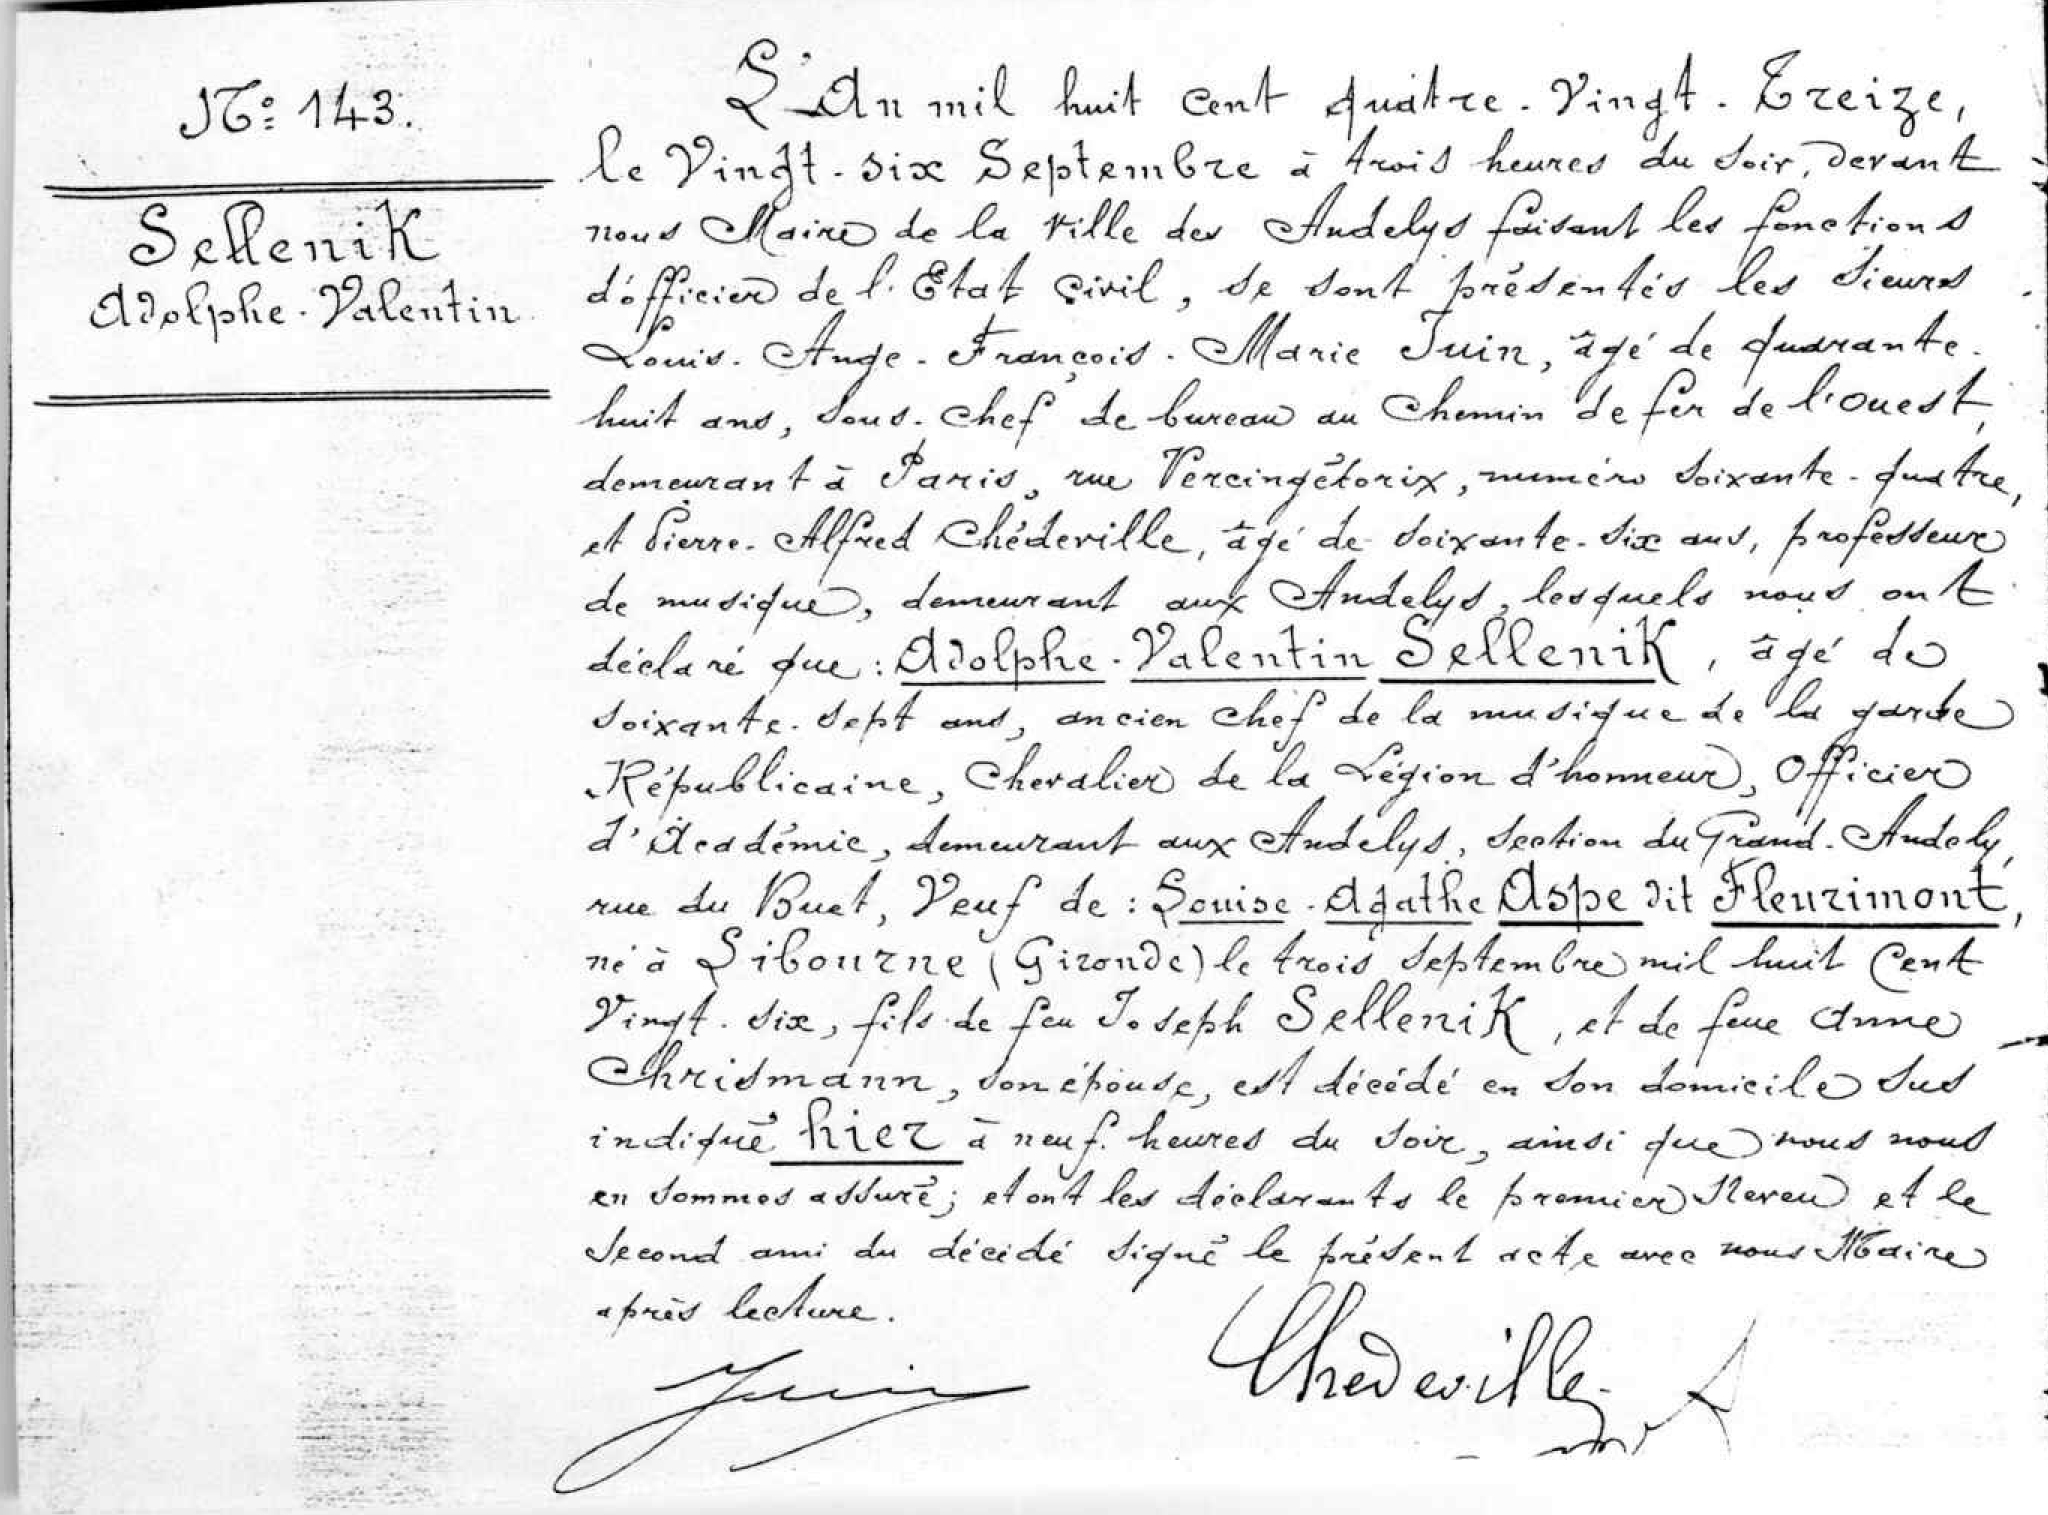 No: 143.
Sellenik
Adolphe-Valentin
L'An mil huit cent quatre-vingt-Treize,
le Vingt-six Septembre à trois heures du soir, devant
nous Maire de la ville des Andelys faisant les fonctions
d'officier de l'Etat Civil, se sont présentés les sieurs
Louis-Ange-François-Marie Juin, âgé de quarante-
huit ans, sous-chef de bureau au Chemin de fer de l'Ouest,
demeurant à Paris, rue Vercingétorix, numéro soixante-quatre,
et Pierre-Alfred Chédeville, âgé de soixante-six ans, professeur
de musique, demeurant aux Andelys, lesquels nous ont
déclaré que: Adolphe-Valentin Sellenik, âgé de
soixante-sept ans, ancien chef de la musique de la garde
Républicaine, Chevalier de la Légion d'honneur, Officier
d'Académie, demeurant aux Andelys, section du Grand-Andely,
rue du Buet, Veuf de: Louise-Agathe Aspe dit Fleurimont,
né à Libourne (Gironde) le trois septembre mil huit Cent
Vingt-six, fils de feu Joseph Sellenik, et de feue Anne
Chrismann, son épouse, est décédé en son domicile sus
indiqué hier à neuf heures du soir, ainsi que nous nous
en sommes assuré; et ont les déclarants le premier Neveu et le
second ami du décédé signé le présent acte avec nous Maire
après lecture.
Juin
Chédeville